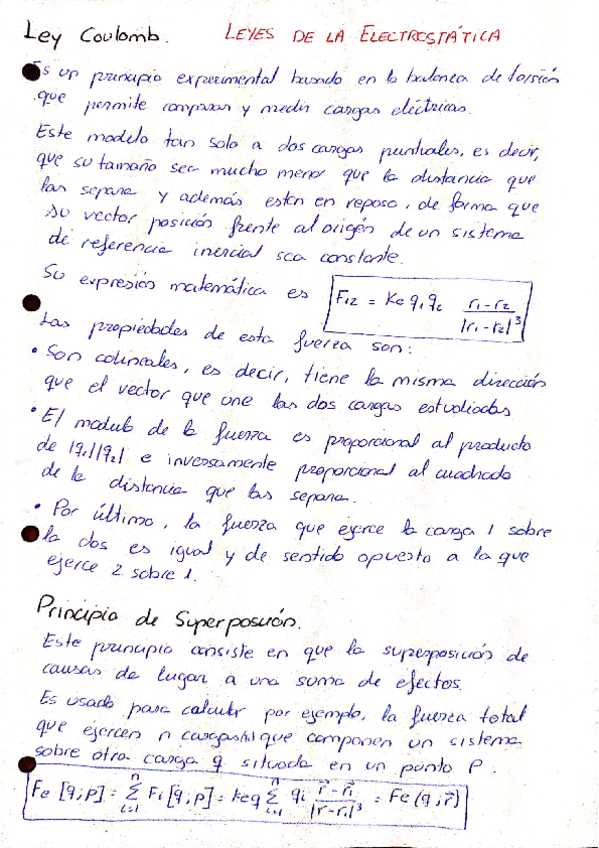 Ley Coulomb. LEYES DE LA ELECTROSTÁTICA
Es un principio experimental basado en la balanza de torsión
que permite comparar y medir cargas eléctricas.
Este modelo tan solo a dos cargas puntuales, es decir,
que su tamaño sea mucho menor que la distancia que
las separa y además esten en reposo, de forma que
su vector posición frente al origen de un sistema
de referencia inercial sea constante.
Su expresión matemática es F12 = Ke q1 q2 (r1-r2)/|r1-r2|³
Las propiedades de esta fuerza son:
• Son colineales, es decir, tiene la misma dirección
que el vector que une las dos cargas estudiadas
• El modulo de la fuerza es proporcional al producto
de |q1||q2| e inversamente proporcional al cuadrado
de la distancia que las separa.
• Por último, la fuerza que ejerce la carga 1 sobre
la dos es igual y de sentido opuesto a la que
ejerce 2 sobre 1.
Principio de Superposición.
Este principio consiste en que la superposición de
causas da lugar a una suma de efectos.
Es usado para calcular por ejemplo, la fuerza total
que ejercen n cargas que componen un sistema
sobre otra carga q situada en un punto P.
Fe [q;p] = Σ(i=1→n) Fi [q,p] = keq Σ(i=1→n) qi (r⃗-r⃗i)/|r-ri|³ = Fe (q;r⃗)